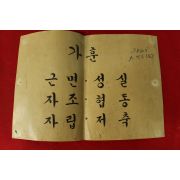 가훈
근면·성실
자조·협동
자립·저축